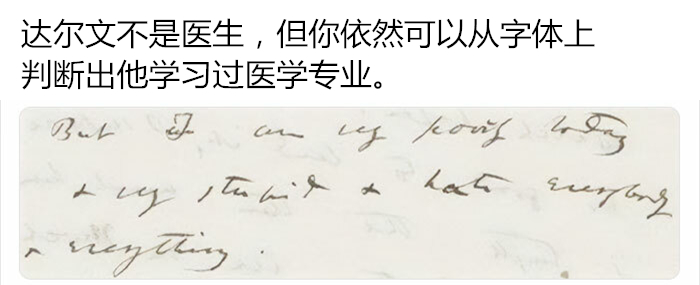 达尔文不是医生，但你依然可以从字体上
判断出他学习过医学专业。
But I am vy poorly today
& vy stupid & hate everybody
& everything.